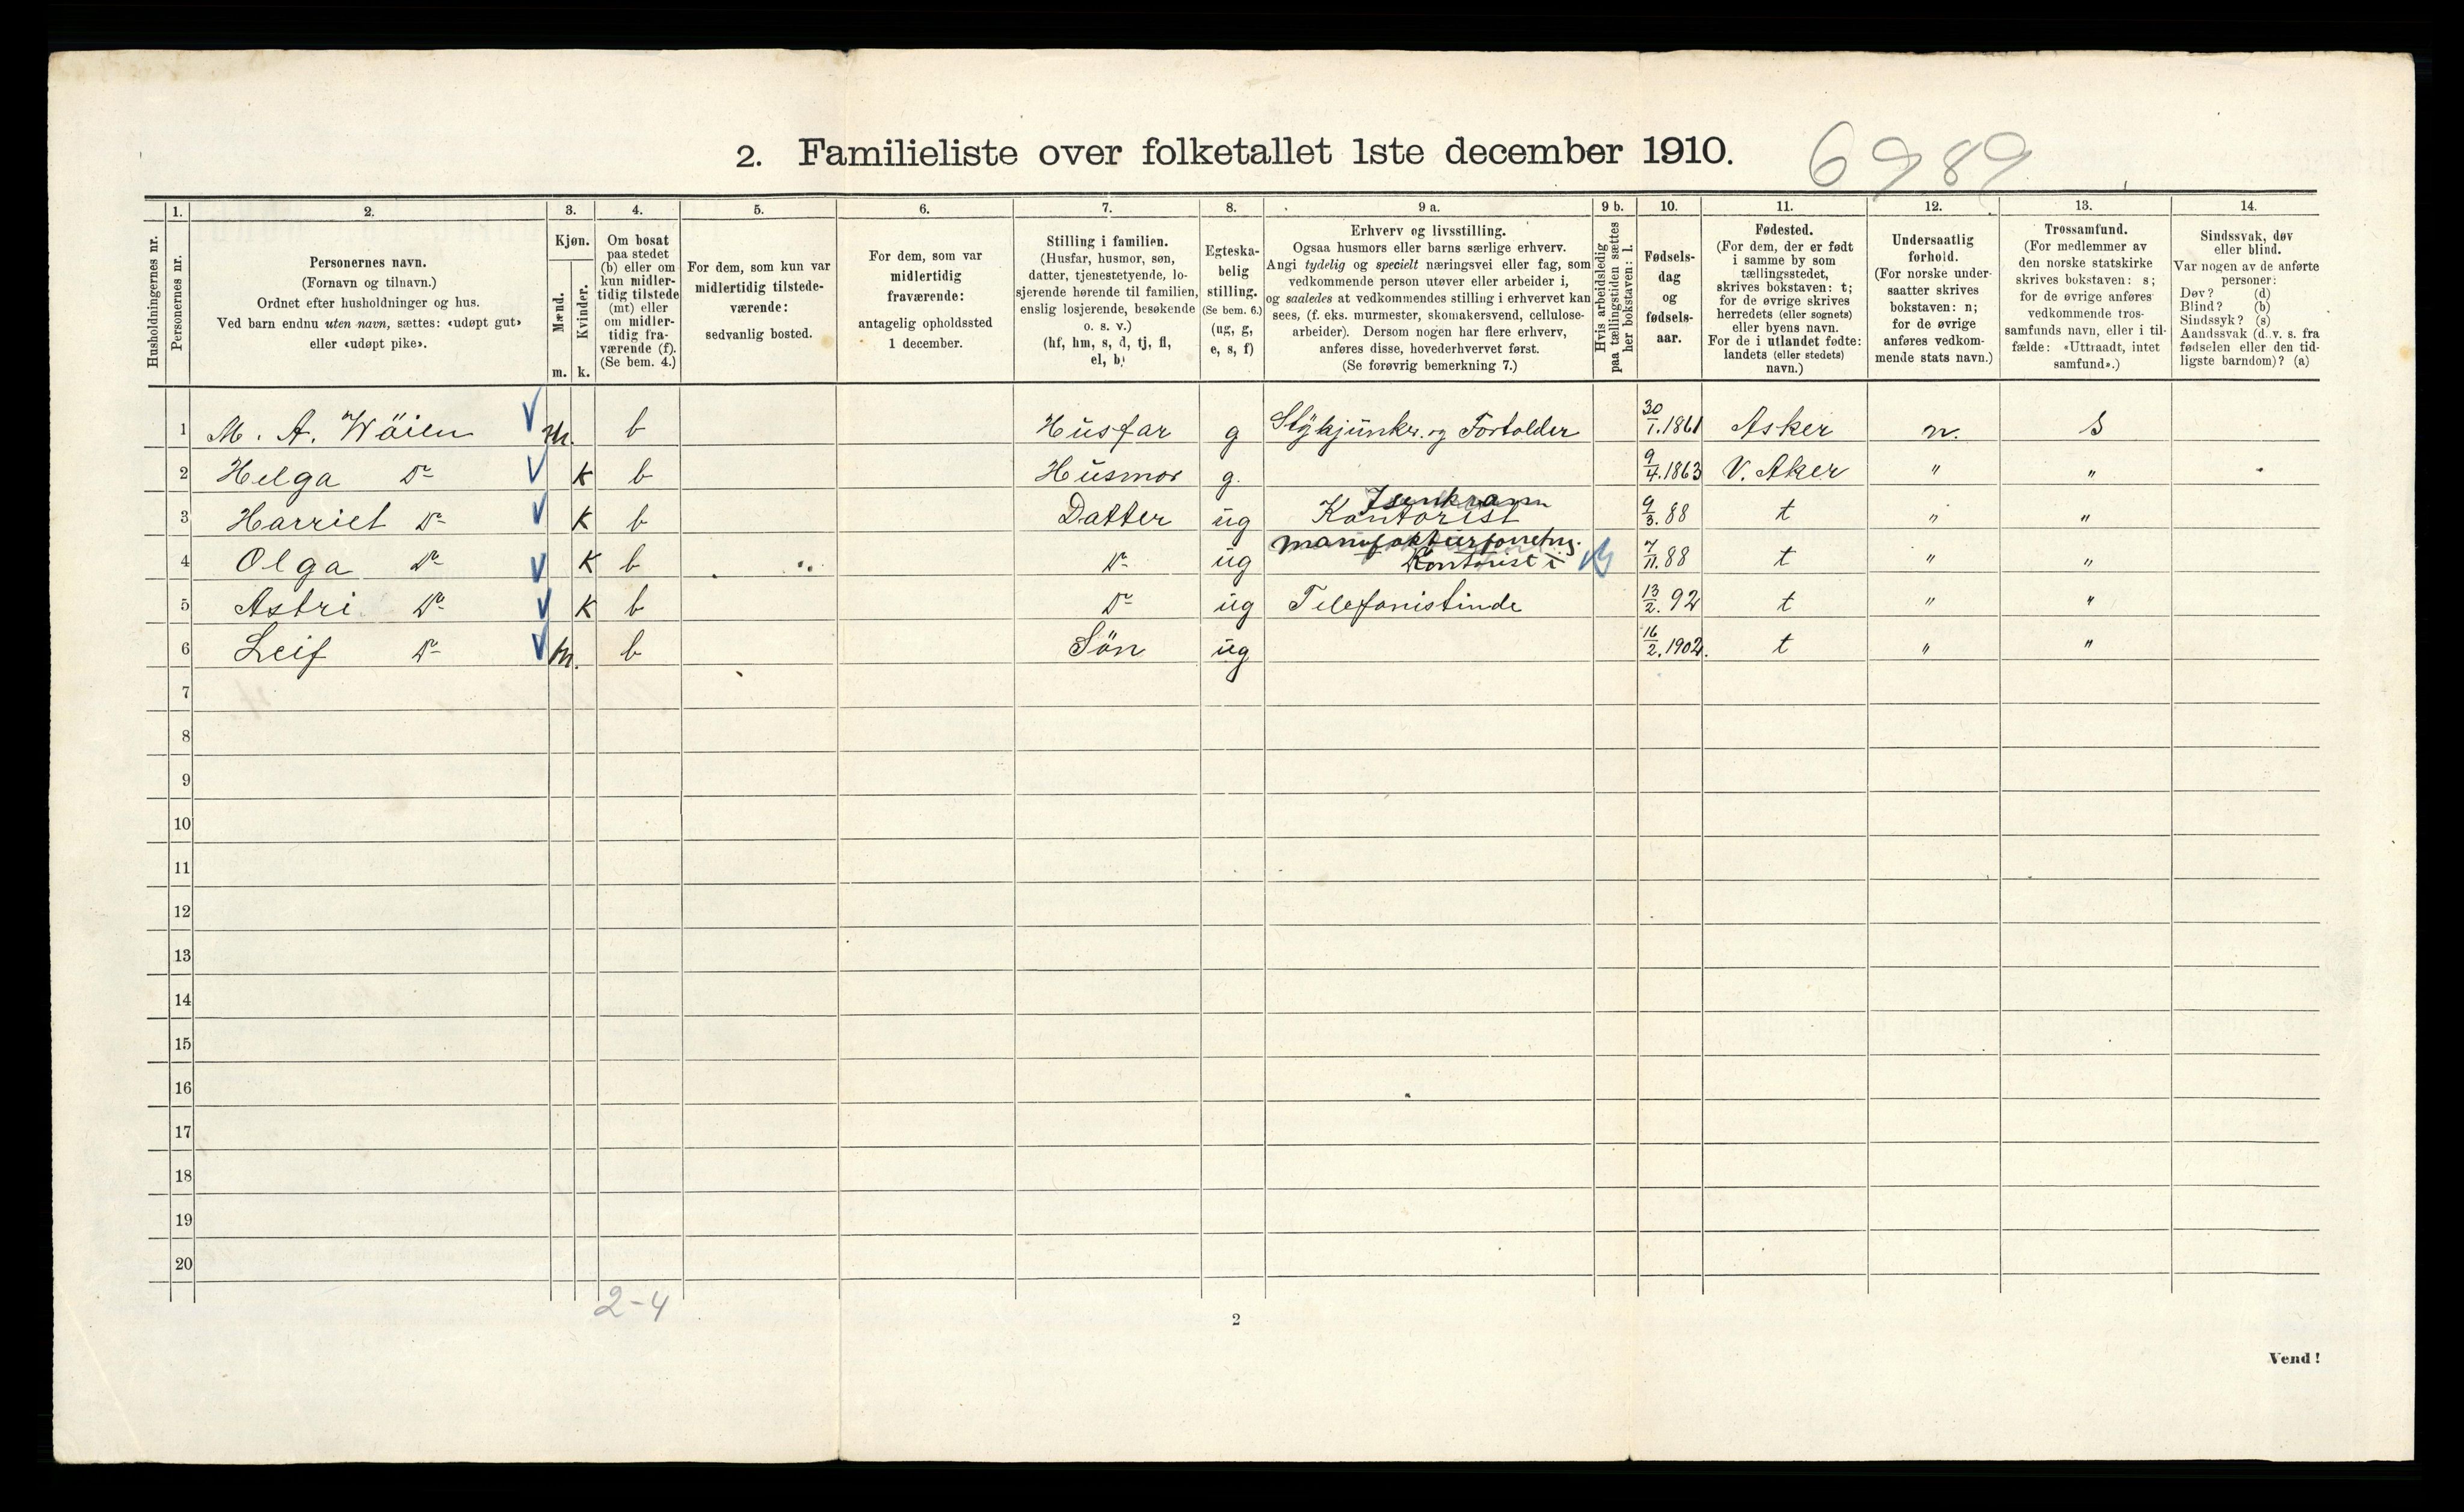 2. Familieliste over folketallet 1ste december 1910. 6989
Husholdningernes nr.
1. Personernes nr.
2. Personernes navn.
(Fornavn og tilnavn.)
Ordnet efter husholdninger og hus.
Ved barn endnu uten navn, sættes: «udøpt gut»
eller «udøpt pike».
3. Kjøn.
Mænd. m.
Kvinder. k.
4. Om bosat
paa stedet
(b) eller om
kun midler-
tidig tilstede
(mt) eller
om midler-
tidig fra-
værende (f).
(Se bem. 4.)
5. For dem, som kun var
midlertidig tilstede-
værende:
sedvanlig bosted.
6. For dem, som var
midlertidig
fraværende:
antagelig opholdssted
1 december.
7. Stilling i familien.
(Husfar, husmor, søn,
datter, tjenestetyende, lo-
sjerende hørende til familien,
enslig losjerende, besøkende
o. s. v.)
(hf, hm, s, d, tj, fl,
el, b)
8. Egteska-
belig
stilling.
(Se bem. 6.)
(ug, g,
e, s, f)
9 a. Erhverv og livsstilling.
Ogsaa husmors eller barns særlige erhverv.
Angi tydelig og specielt næringsvei eller fag, som
vedkommende person utøver eller arbeider i,
og saaledes at vedkommendes stilling i erhvervet kan
sees, (f. eks. murmester, skomakersvend, cellulose-
arbeider). Dersom nogen har flere erhverv,
anføres disse, hovederhvervet først.
(Se forøvrig bemerkning 7.)
9 b. Hvis arbeidsledig
paa tællingstiden sættes
her bokstaven: l.
10. Fødsels-
dag
og
fødsels-
aar.
11. Fødested.
(For dem, der er født
i samme by som
tællingsstedet,
skrives bokstaven: t;
for de øvrige skrives
herredets (eller sognets)
eller byens navn.
For de i utlandet fødte:
landets (eller stedets)
navn.)
12. Undersaatlig
forhold.
(For norske under-
saatter skrives
bokstaven: n;
for de øvrige
anføres vedkom-
mende stats navn.)
13. Trossamfund.
(For medlemmer av
den norske statskirke
skrives bokstaven: s;
for de øvrige anføres
vedkommende tros-
samfunds navn, eller i til-
fælde: «Uttraadt, intet
samfund».)
14. Sindssvak, døv
eller blind.
Var nogen av de anførte
personer:
Døv? (d)
Blind? (b)
Sindssyk? (s)
Aandssvak (d. v. s. fra
fødselen eller den tid-
ligste barndom)? (a)
1 M. A. Wöien m. b Husfar g Stykjunker. og Fortolder 30/1.1861 Asker n. S
2 Helga Do K b Husmor g. 9/4.1863 V. Aker " "
3 Harriet Do K b Datter ug Isenkram Kontorist 9/3.88 t " "
4 Olga Do K b Do ug manufakturforretng. Kontorist i 7/11.88 t " "
5 Astri Do K b Do ug Telefonistinde 13/2.92 t " "
6 Leif Do m. b Sön ug 16/2.1902. t " "
7
8
9
10
11
12
13
14
15
16
17
18
19
20
2-4
2
Vend!